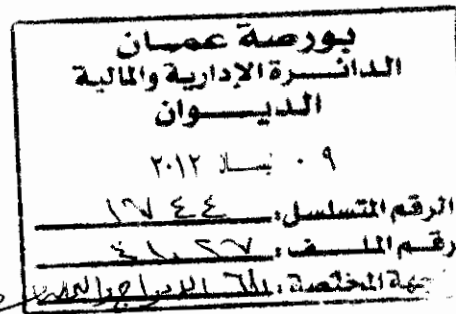 بورصة عمان
الدائرة الإدارية والمالية
الديوان
٠٩ نيسان ٢٠١٢
الرقم المتسلسل: ١٧٤٤
رقم الملف: ٤١٠٢٧
جهة المختصة: